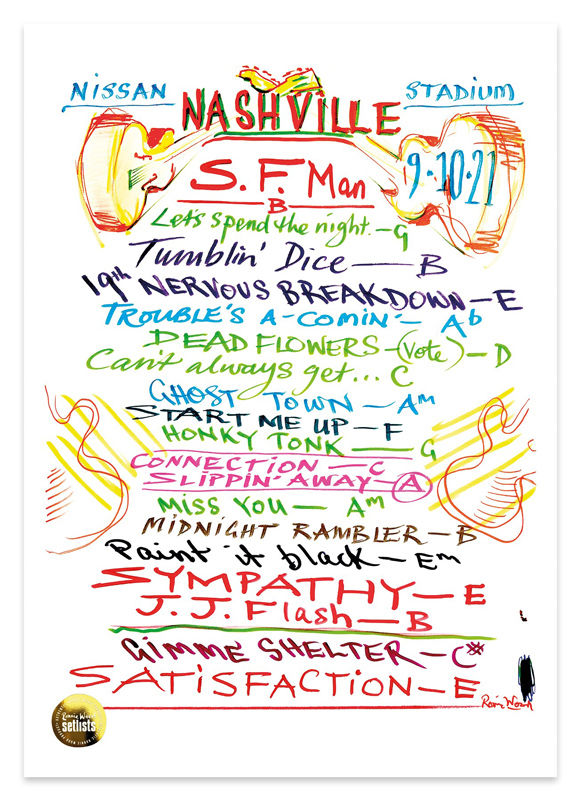 NISSAN
NASHVILLE
STADIUM
9·10·21
S.F. Man
B
Let's spend the night. — G
Tumblin' Dice — B
19th NERVOUS BREAKDOWN — E
TROUBLE'S A-COMIN' — Ab
DEAD FLOWERS — (Vote) — D
Can't always get... C
GHOST TOWN — Am
START ME UP — F
HONKY TONK — G
CONNECTION — C
SLIPPIN' AWAY — A
MISS YOU — Am
MIDNIGHT RAMBLER — B
Paint it black — Em
SYMPATHY — E
J.J. Flash — B
GIMME SHELTER — C#
SATISFACTION — E
Ronnie Wood
setlists